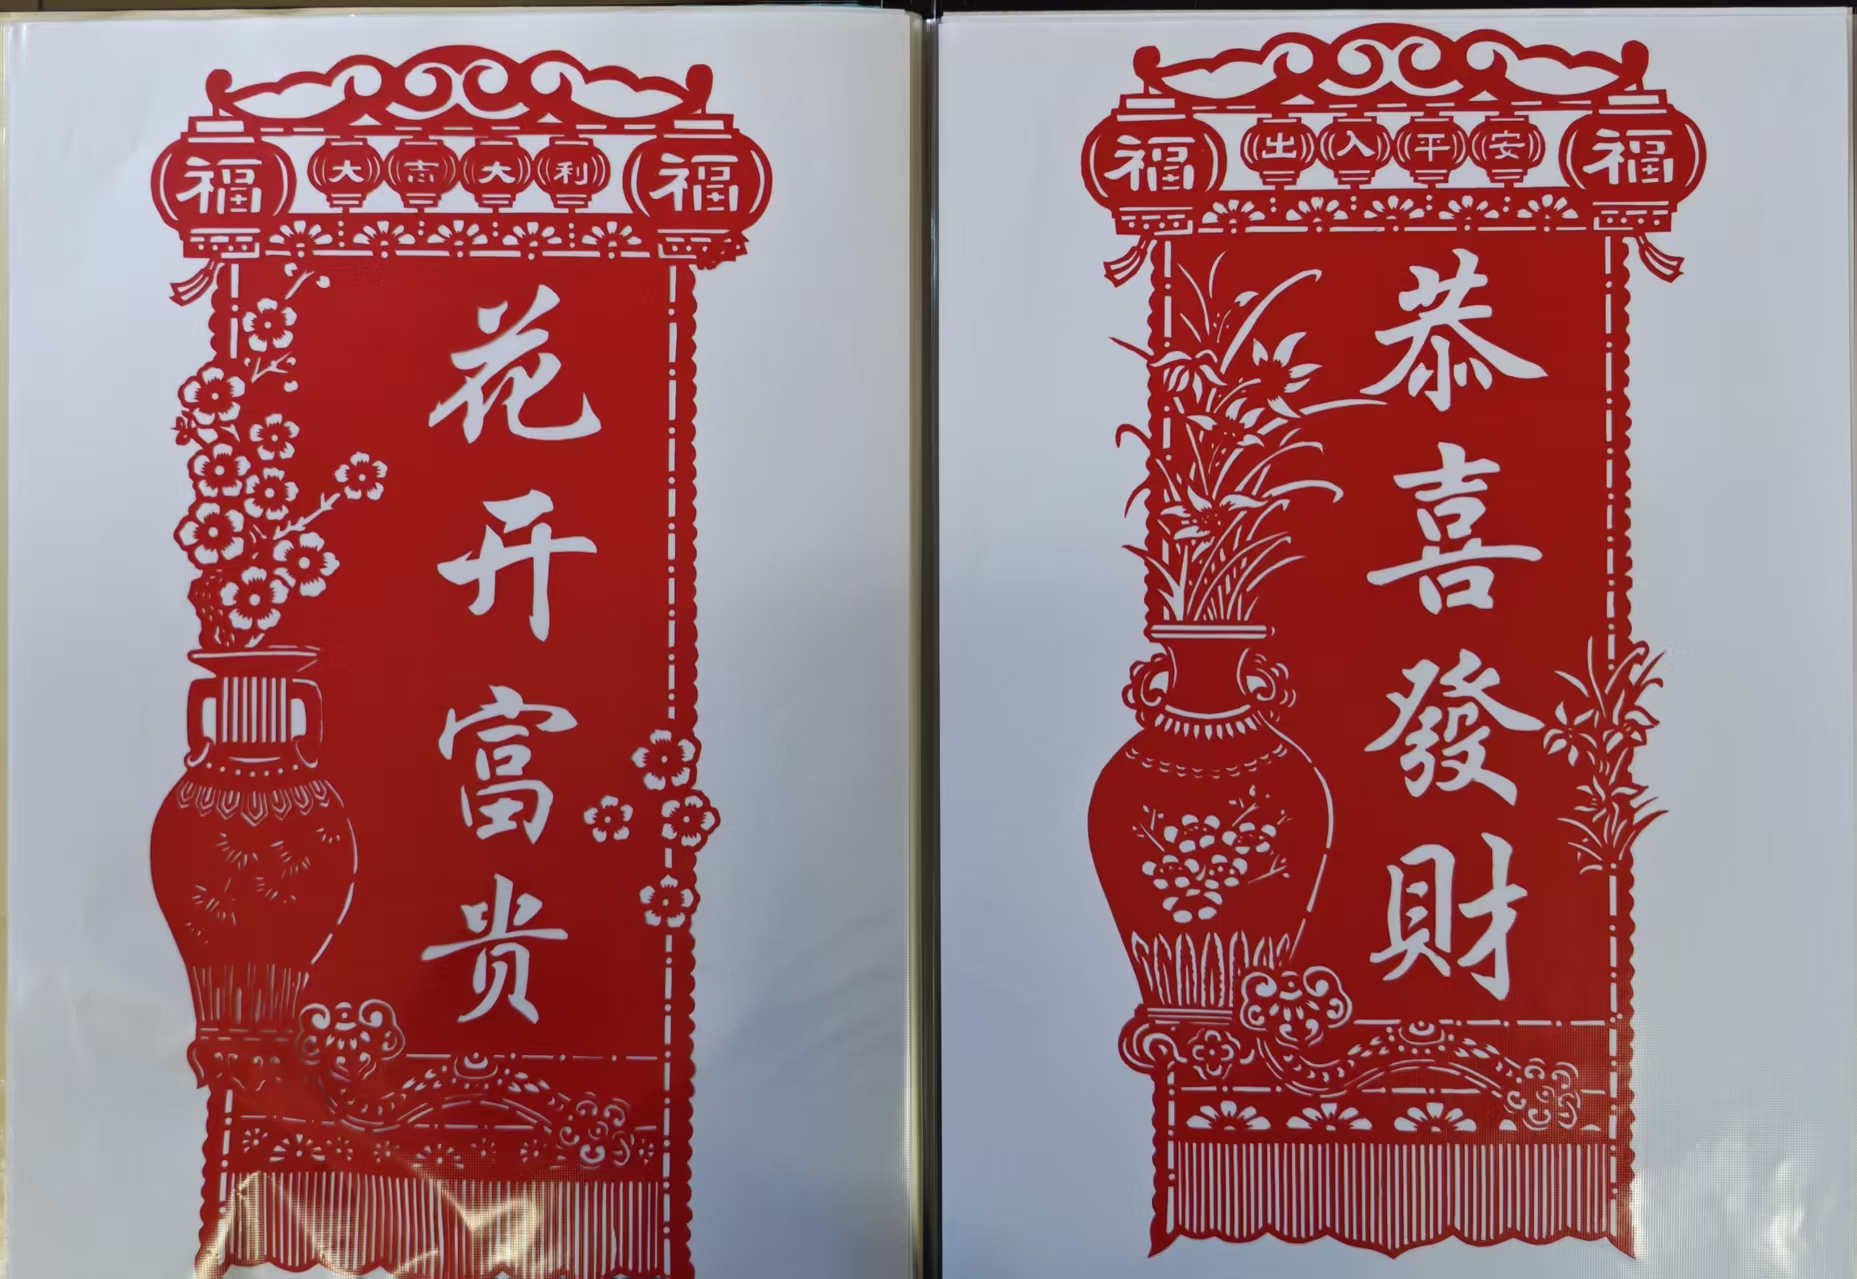 福 大吉大利 福
花开富贵
福 出入平安 福
恭喜發財